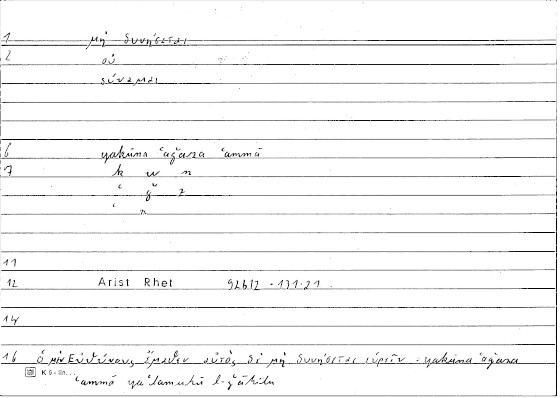 1 μὴ δυνήσεται
2 οὐ
δύναμαι
6 yakūna ʿaǧaza ʿammā
7 k w n
ʿ ǧ z
ʿ n
11
12 Arist Rhet 92b12 - 131.21
14
16 ὁ μὲν Εὐθύνους ἔμαθεν αὐτὸς δὲ μὴ δυνήσεται εὑρεῖν - yakūna ʿaǧaza
ʿammā yaʿlamuhū l-ǧāhilu